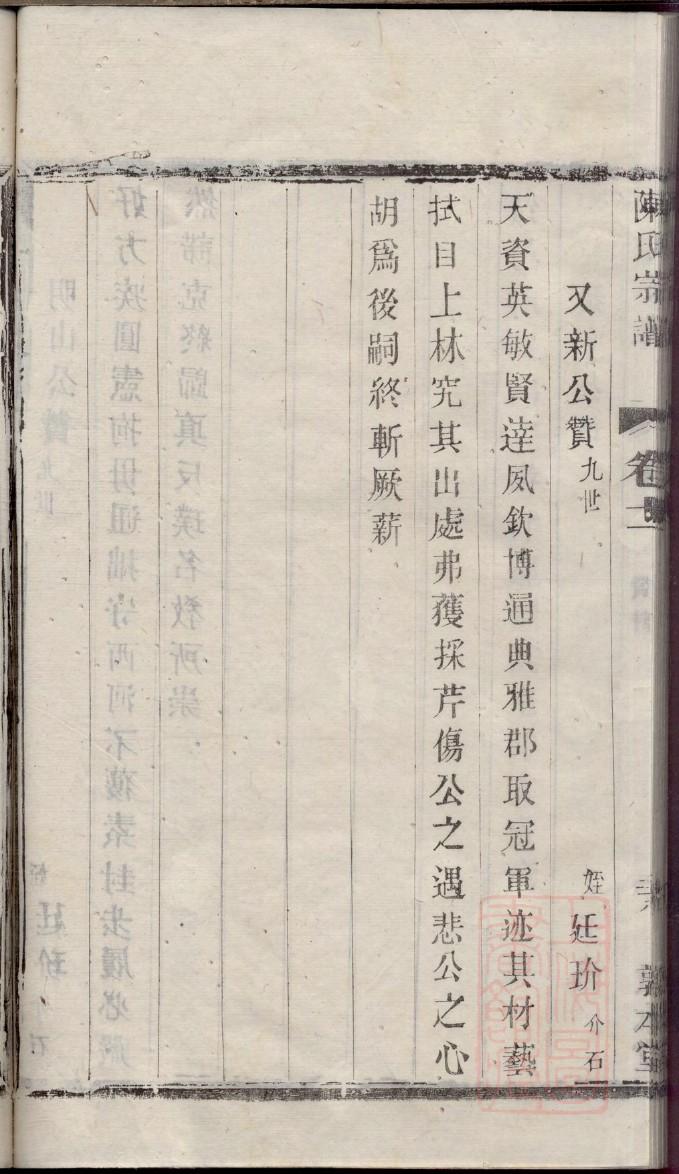 陳氏宗譜
卷十二
敦本堂
又新公贊 九世
姪 廷玠 介石
天資英敏賢達夙欽博通典雅郡取冠軍迹其材藝
拭目上林究其出處弗獲採芹傷公之遇悲公之心
胡爲後嗣終斬厥薪